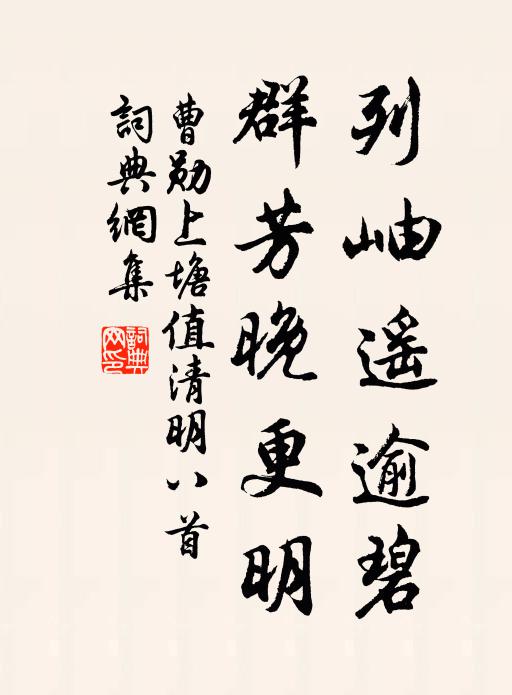 列岫遥逾碧
群芳晚更明
曹勋上塘值清明八首
詞典網集
詞典网印